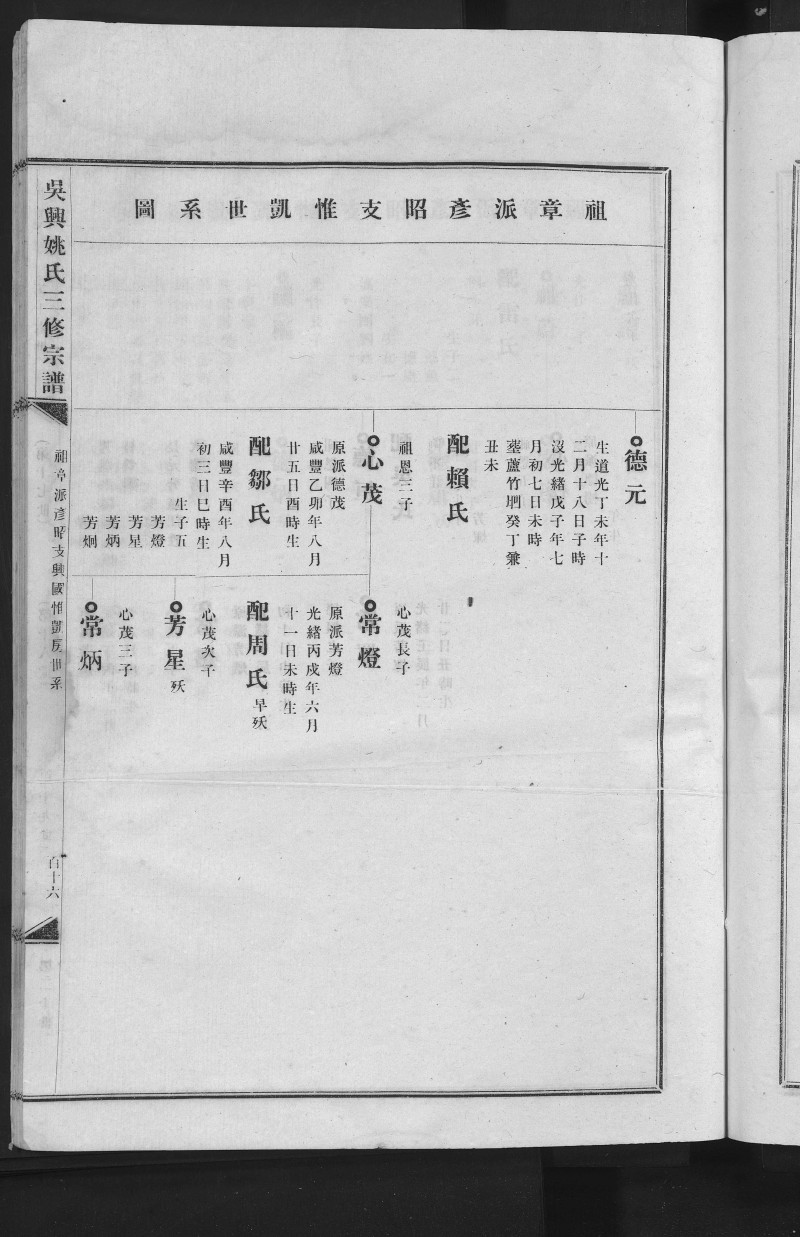 祖章派彥昭支惟凱世系圖
德元
生道光丁未年十
二月十八日子時
沒光緒戊子年七
月初七日未時
塟蘆竹垇癸丁兼
丑未
配賴氏
祖恩三子
心茂
原派德茂
咸豐乙卯年八月
廿五日酉時生
配鄒氏
咸豐辛酉年八月
初三日巳時生
生子五
芳燈
芳星
芳炳
芳炯
心茂長子
常燈
原派芳燈
光緒丙戌年六月
十一日未時生
配周氏 早殀
心茂次子
芳星 殀
心茂三子
常炳
吳興姚氏三修宗譜
祖章派彥昭支興國惟凱房世系
百十六